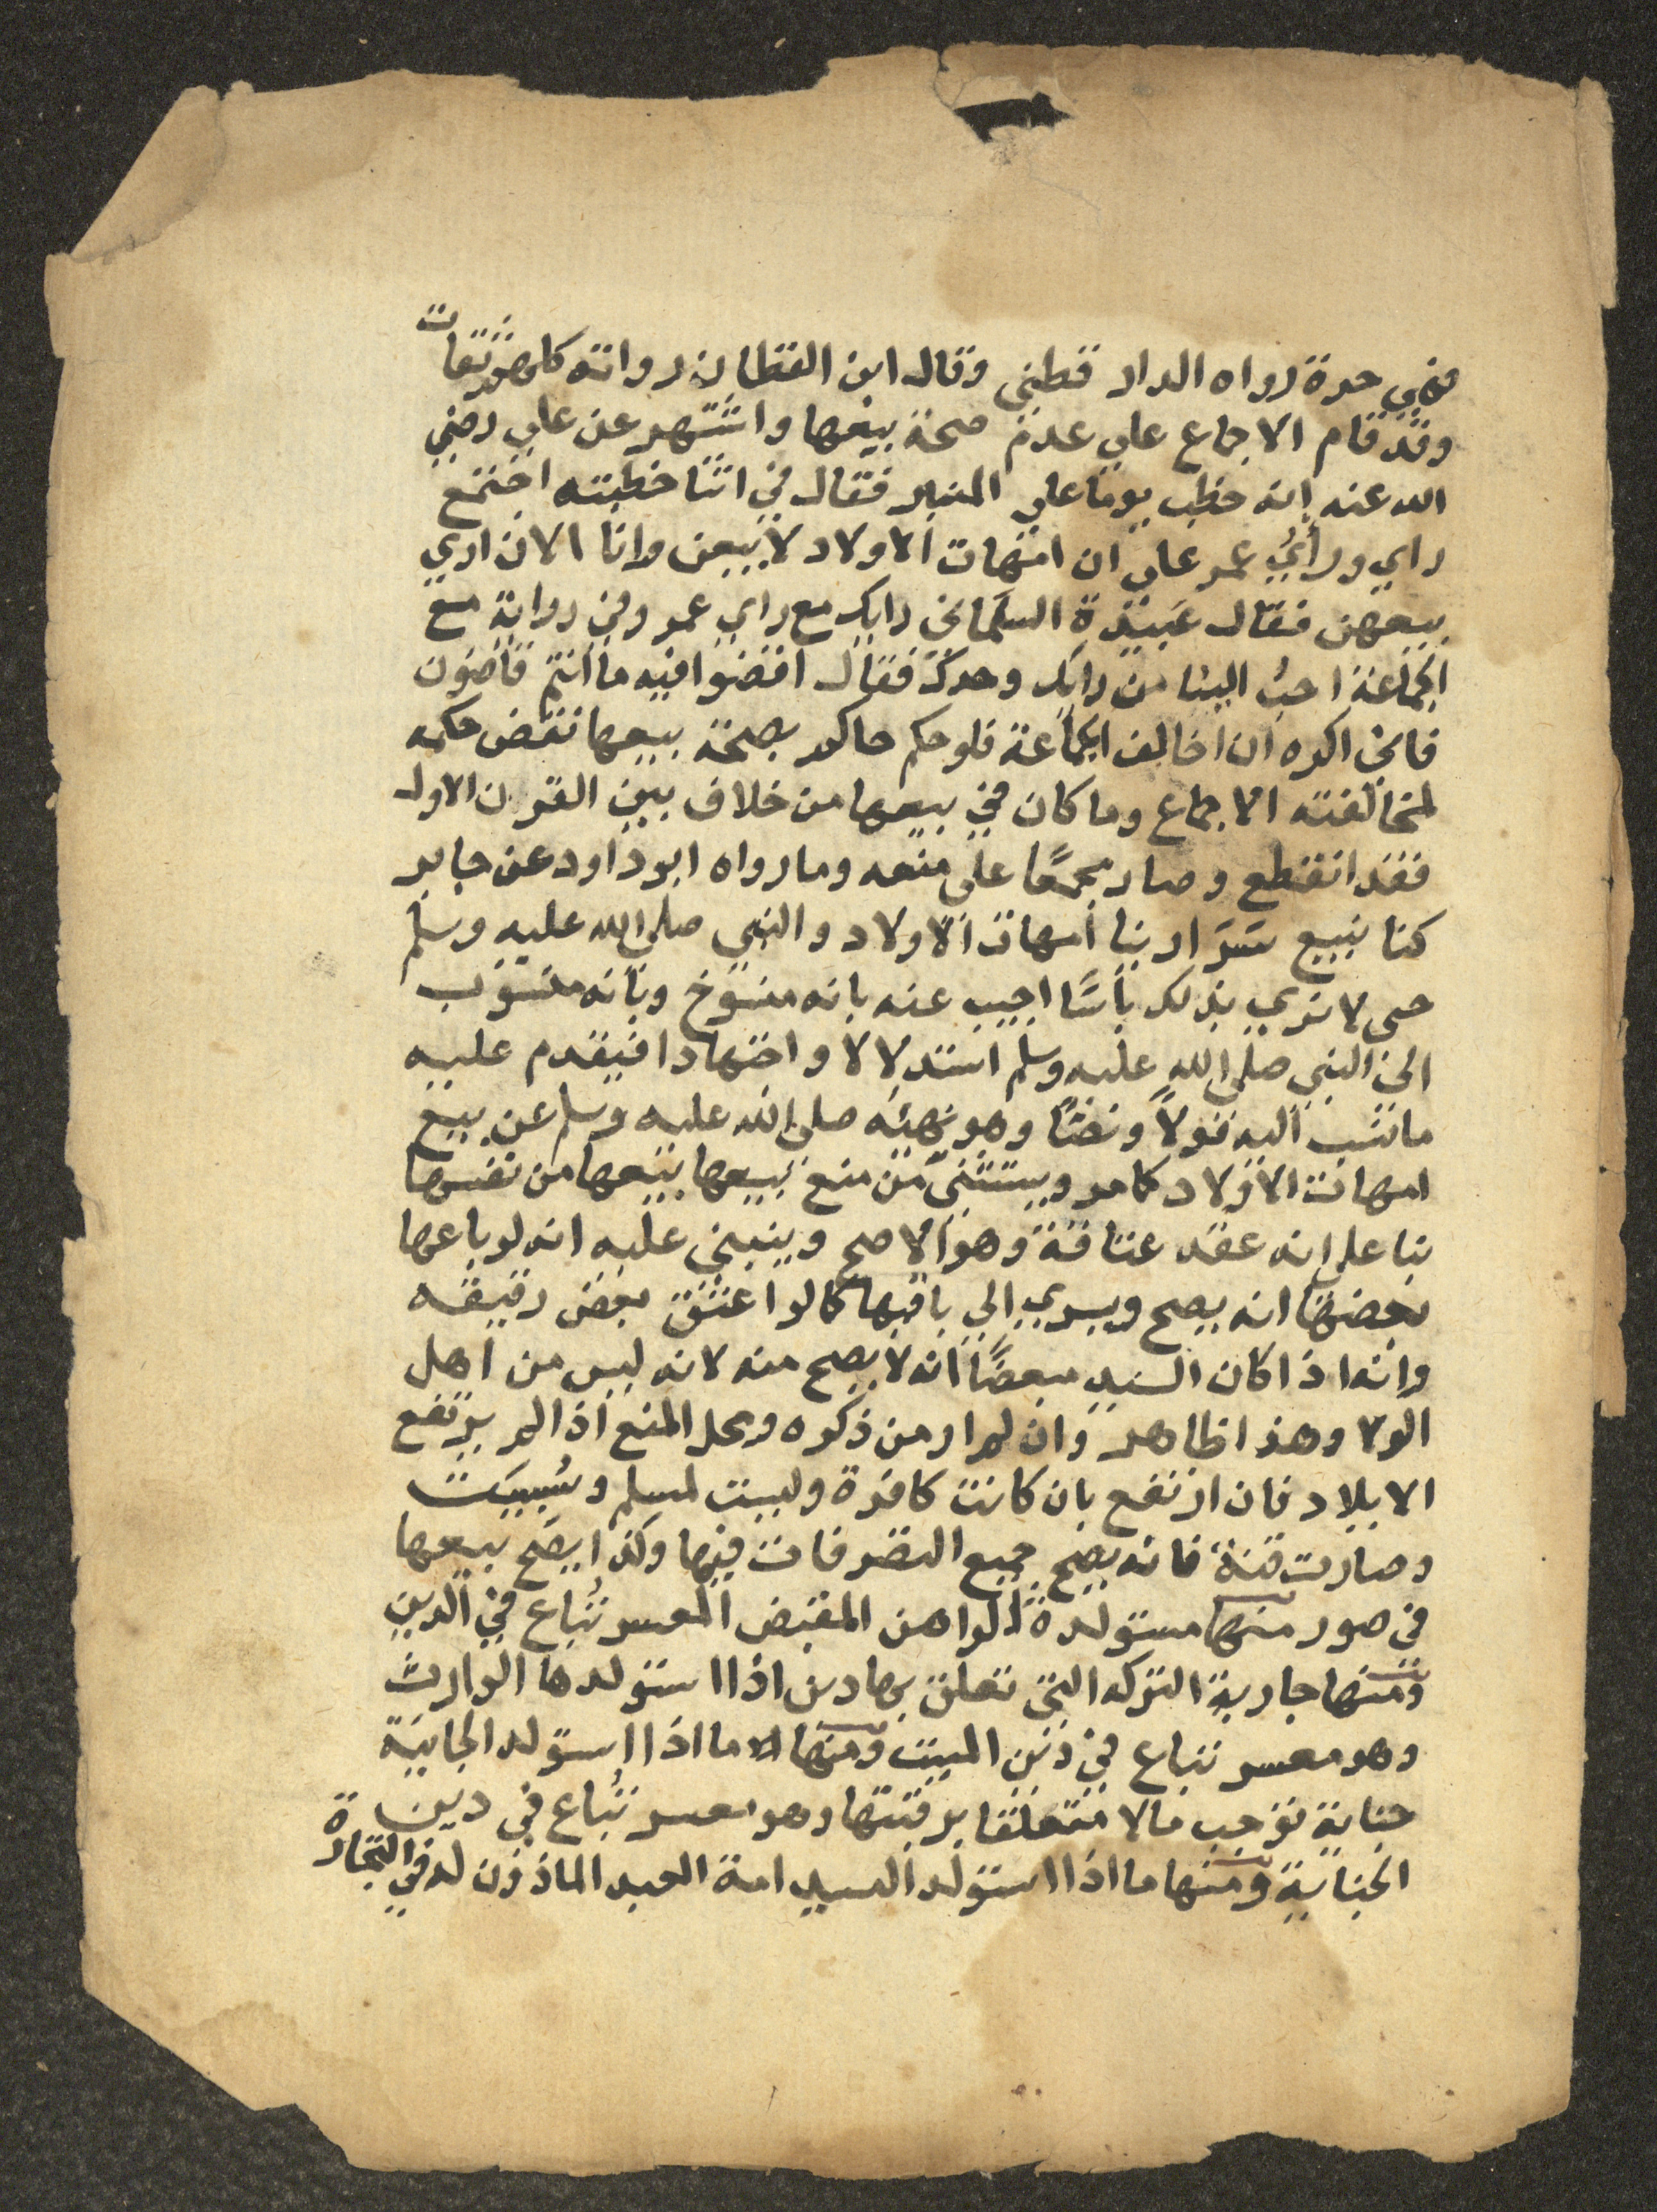 فهي حرة رواه الدار قطني وقال ابن القطان رواته كلهم ثقات
وقد قام الاجماع علي عدم صحة بيعها واشتهر عن علي رضي
الله عنه انه خطب يوما علي المنبر فقال في اثنا خطبته اجتمع
راي ورأيُ عمر علي ان امهات الاولاد لا يبعن وانا الان اري
بيعهن فقال عَبيدة السلماني رايك مع راي عمر وفي رواية مع
الجماعة احبُ الينا من رايك وحدك فقال اقضوا فيه ما انتم قاضون
فاني اكره ان اخالف الجماعة فلو حكم حاكم بصحة بيعها نقض حكمه
لمخالفته الاجماع وما كان في بيعها من خلاف بين القرن الاول
فقد انقطع وصار مجمعًا على منعه وما رواه ابو داود عن جابر
كنا نبيع سَرَارينا أمهات الاولاد والنبي صلى الله عليه وسلم
حي لا نري بذلك بأسًا اجيب عنه بانه منسوخ وبانه منسوب
الى النبي صلى الله عليه وسلم استدلالا واجتهادا فيقدم عليه
ما نسب اليه قولاً ونصًا وهو نهيُه صلى الله عليه وسلم عن بيع
امهات الاولاد كما مر ويستثنى من منع بيعها بيعها من نفسها
بنا على انه عقد عتاقة وهو الاصح وينبني عليه انه لو باعها
بعضها انه يصح ويسري الي باقيها كما لو اعتق بعض رقيقه
وانه اذا كان السيد مبعضًا انه لا يصح منه لانه ليس من اهل
الولا وهذا ظاهر وان لم ار من ذكره ومحل المنع اذا لم يرتفع
الايلاد فان ارتفع بان كانت كافرة وليست لمسلم وسُبيَت
وصارت قنة فانه يصح جميع التصرفات فيها وكذا يصح بيعها
في صور منها مستولدة الراهن المقبض المعسر تُباع في الدين
ومنها جارية التركه التي تعلق بها دين اذا استولدها الوارث
وهو معسر تباع في دين الميت ومنها ما اذا استولد الجانية
جناية توجب مالا متعلقا برقبتها وهو معسر تُباع في دين
الجناية ومنها ما اذا استولد السيد امة العبد الماذون له في التجارة